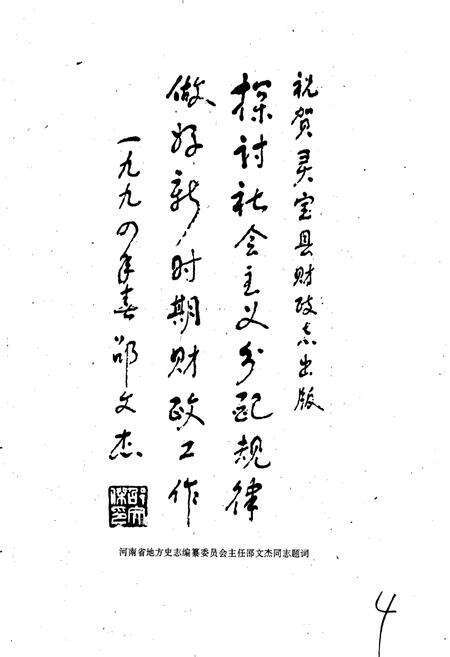 祝贺灵宝县财政志出版
探讨社会主义分配规律
做好新时期财政工作
一九九四年春 邵文杰
河南省地方史志编纂委员会主任邵文杰同志题词
4